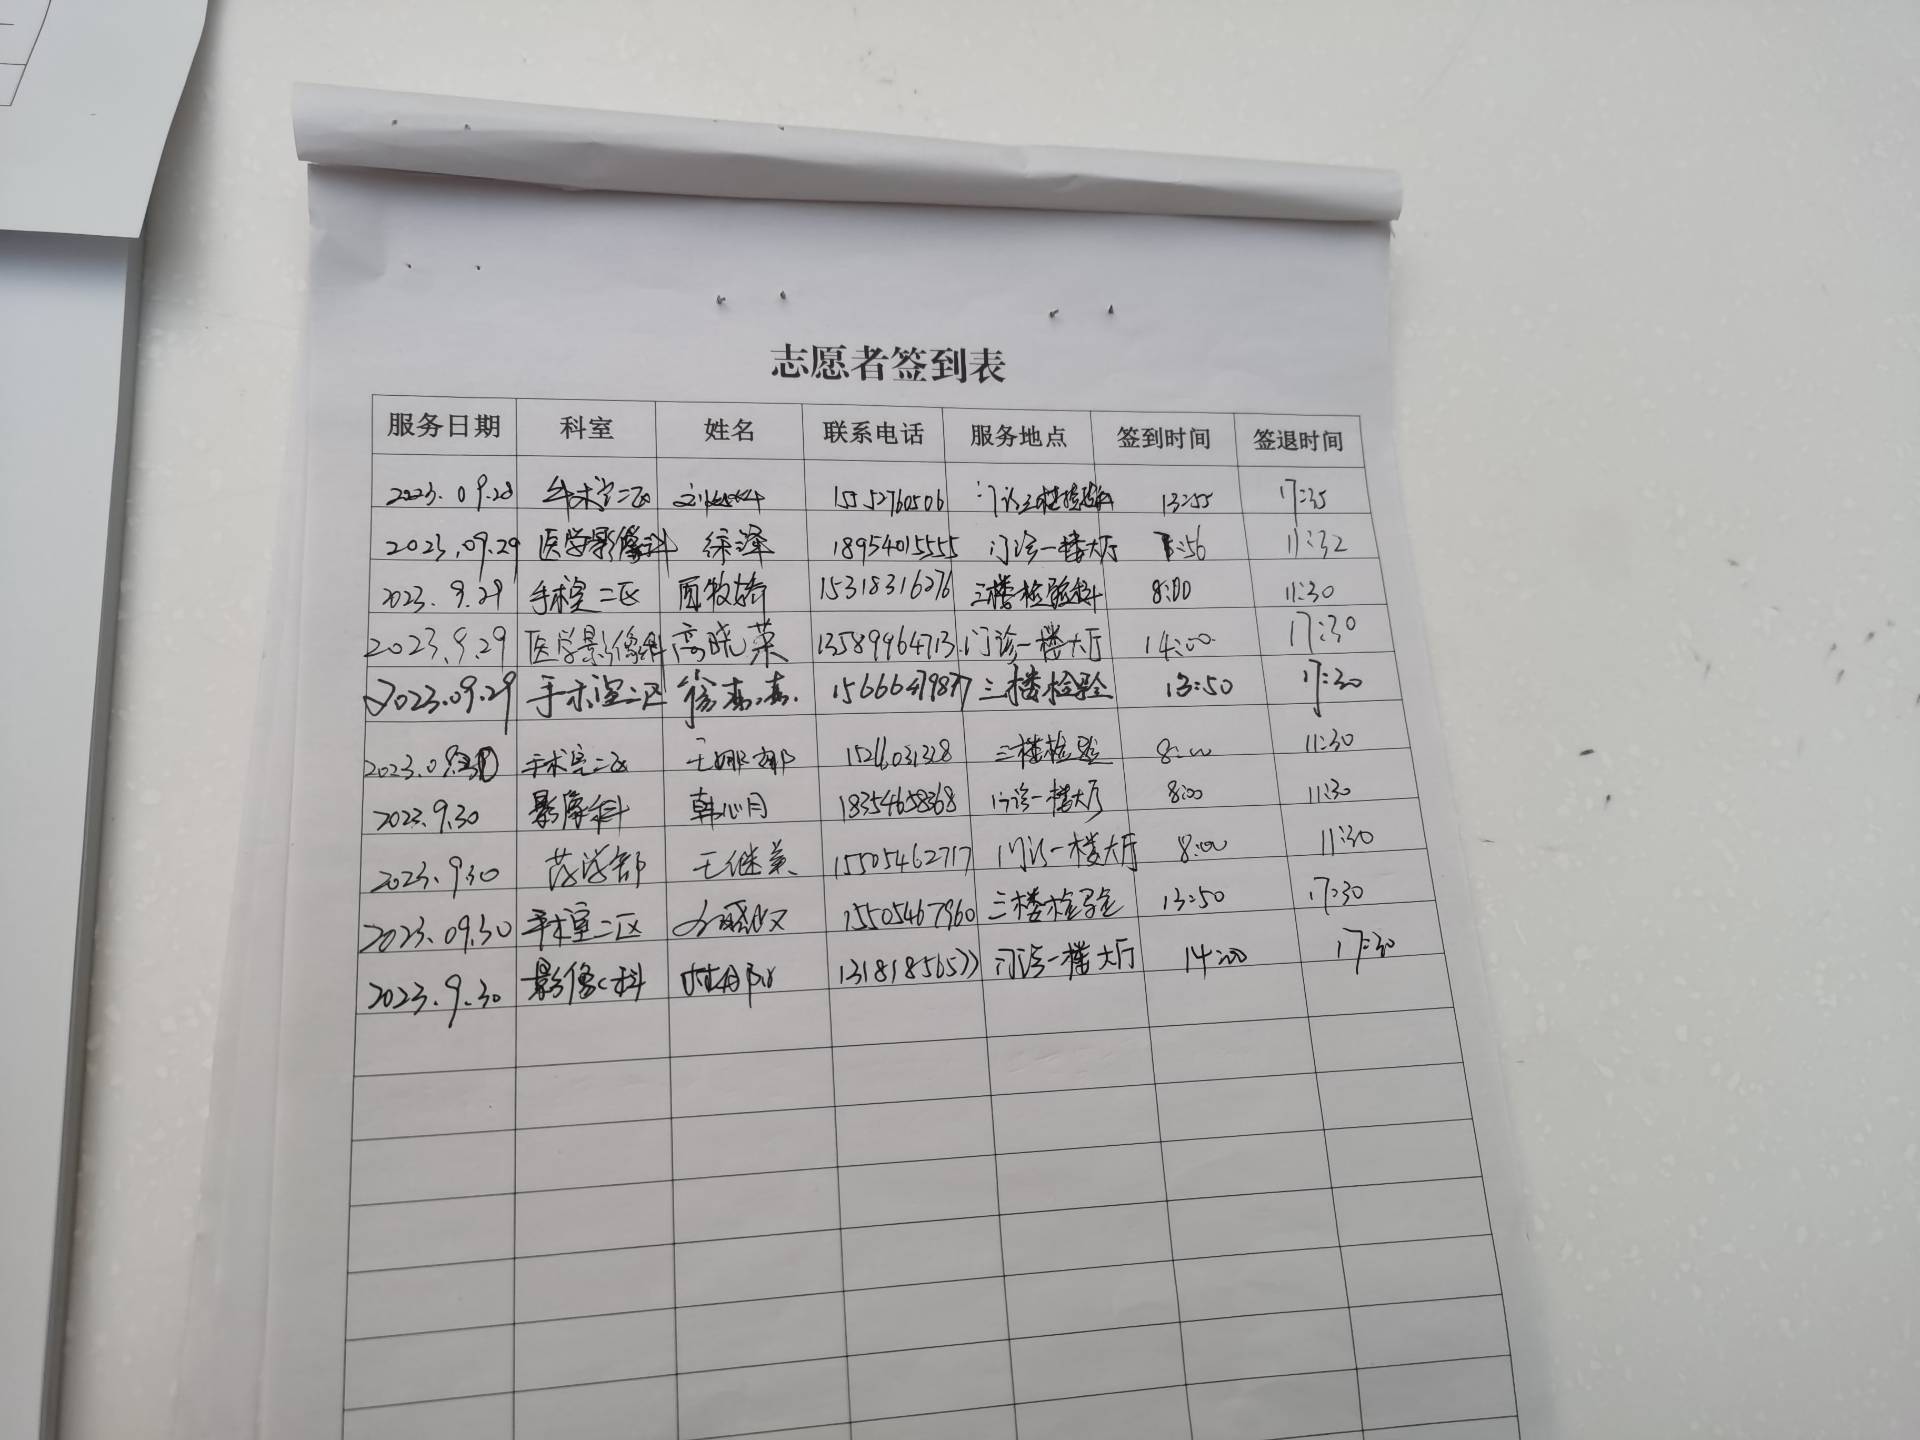 志愿者签到表
服务日期 科室 姓名 联系电话 服务地点 签到时间 签退时间
2023.09.28 手术室二区 15552760506 门诊三楼检验科 13:55 17:35
2023.09.29 医学影像科 徐泽 18954015555 门诊一楼大厅 7:56 11:32
2023.9.29 手术室二区 15318316276 三楼检验科 8:00 11:30
2023.9.29 医学影像科 高晓荣 13589964713 门诊一楼大厅 14:00 17:30
2023.09.29 手术室二区 徐嘉嘉 三楼检验 13:50 17:30
2023.09.30 手术室二区 王娜娜 三楼检验 8:00 11:30
2023.9.30 影像科 韩心月 18354658368 门诊一楼大厅 8:00 11:30
2023.9.30 王继美 15505462717 门诊一楼大厅 8:00 11:30
2023.09.30 手术室二区 15505467960 三楼检验 13:50 17:30
2023.9.30 影像科 门诊一楼大厅 14:00 17:30